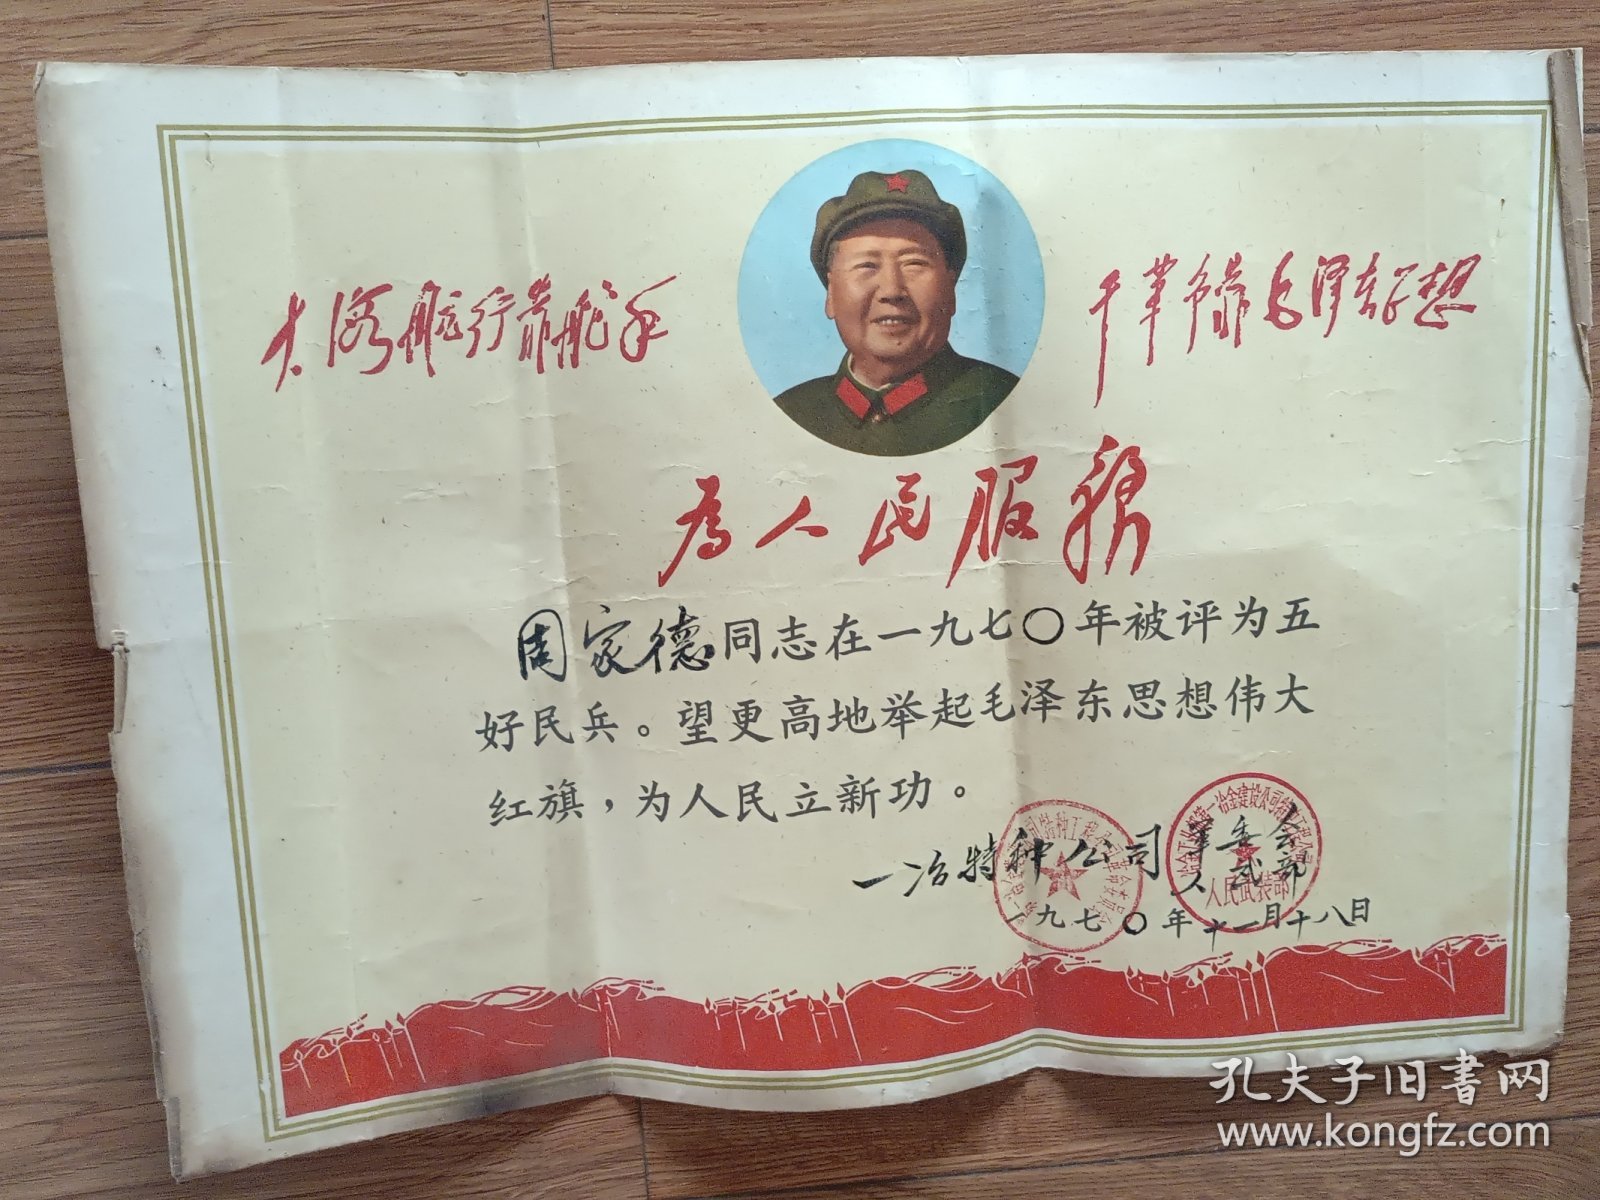 大海航行靠舵手
干革命靠毛泽东思想
为人民服务
周家德同志在一九七〇年被评为五
好民兵。望更高地举起毛泽东思想伟大
红旗，为人民立新功。
一冶特种公司 革委会
人武部
一九七〇年十一月十八日
人民武装部
孔夫子旧書网
www.kongfz.com